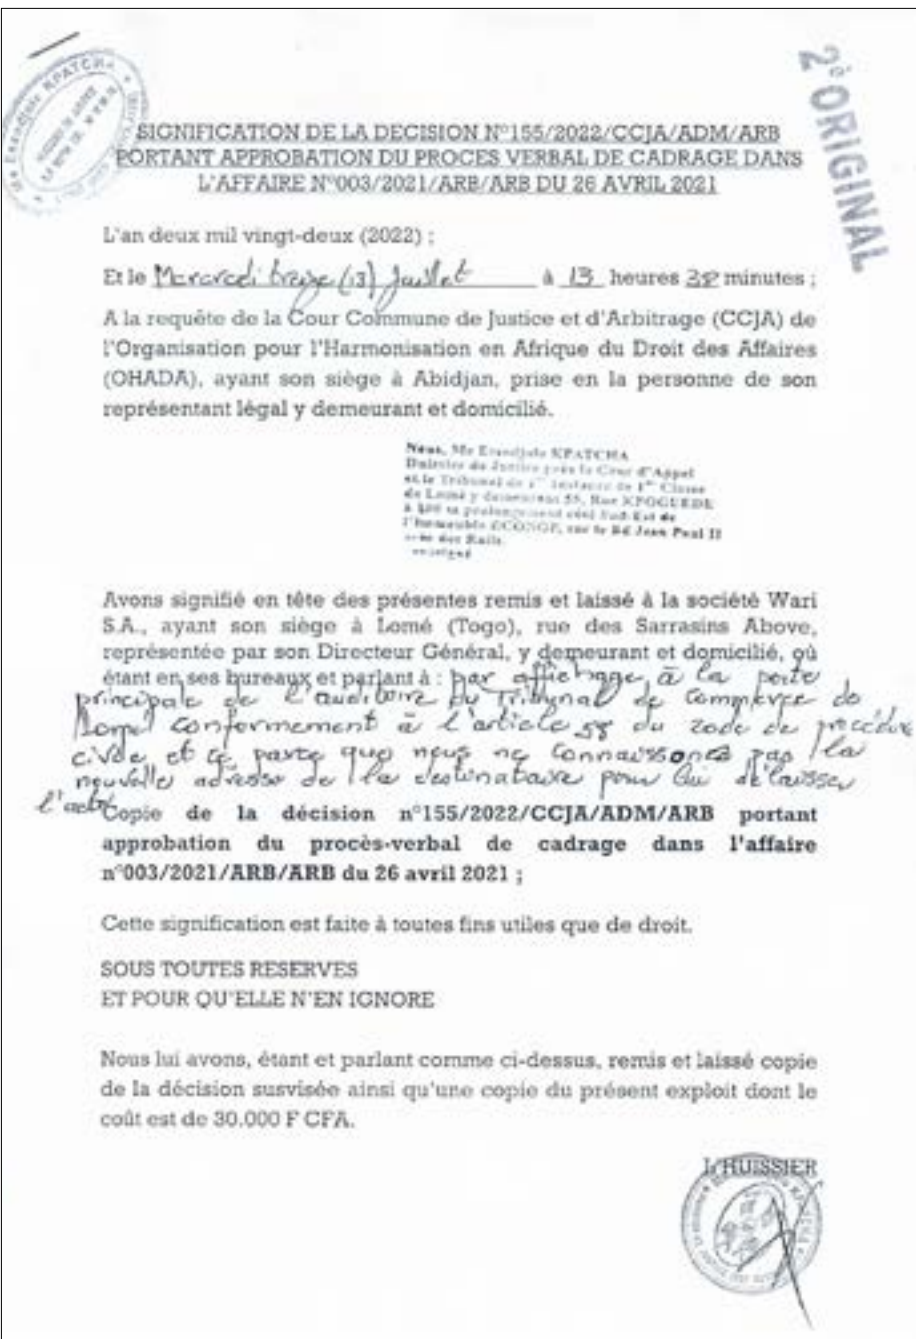 2è ORIGINAL
SIGNIFICATION DE LA DECISION N°155/2022/CCJA/ADM/ARB
PORTANT APPROBATION DU PROCES VERBAL DE CADRAGE DANS
L'AFFAIRE N°003/2021/ARB/ARB DU 26 AVRIL 2021
L'an deux mil vingt-deux (2022) ;
Et le Mercredi treize (13) Juillet à 13 heures 38 minutes ;
A la requête de la Cour Commune de Justice et d'Arbitrage (CCJA) de
l'Organisation pour l'Harmonisation en Afrique du Droit des Affaires
(OHADA), ayant son siège à Abidjan, prise en la personne de son
représentant légal y demeurant et domicilié.
Nous, Me Essodjolo KPATCHA
Huissier de Justice près la Cour d'Appel
et le Tribunal de 1ère Instance de 1ère Classe
de Lomé y demeurant 55, Rue KPOGUEDE
à 500 m prolongement côté Sud-Est de
l'Immeuble ECONOF, sur le Bd Jean Paul II
Rails.
Avons signifié en tête des présentes remis et laissé à la société Wari
S.A., ayant son siège à Lomé (Togo), rue des Sarrasins Above,
représentée par son Directeur Général, y demeurant et domicilié, où
étant en ses bureaux et parlant à : par affichage à la porte
principale de l'auditoire du Tribunal de commerce de
Lomé conformement à l'article 58 du code de procédure
civile et ce parce que nous ne connaissons pas la
nouvelle adresse de la destinataire pour lui délaisser
l'acte
Copie de la décision n°155/2022/CCJA/ADM/ARB portant
approbation du procès-verbal de cadrage dans l'affaire
n°003/2021/ARB/ARB du 26 avril 2021 ;
Cette signification est faite à toutes fins utiles que de droit.
SOUS TOUTES RESERVES
ET POUR QU'ELLE N'EN IGNORE
Nous lui avons, étant et parlant comme ci-dessus, remis et laissé copie
de la décision susvisée ainsi qu'une copie du présent exploit dont le
coût est de 30.000 F CFA.
L'HUISSIER